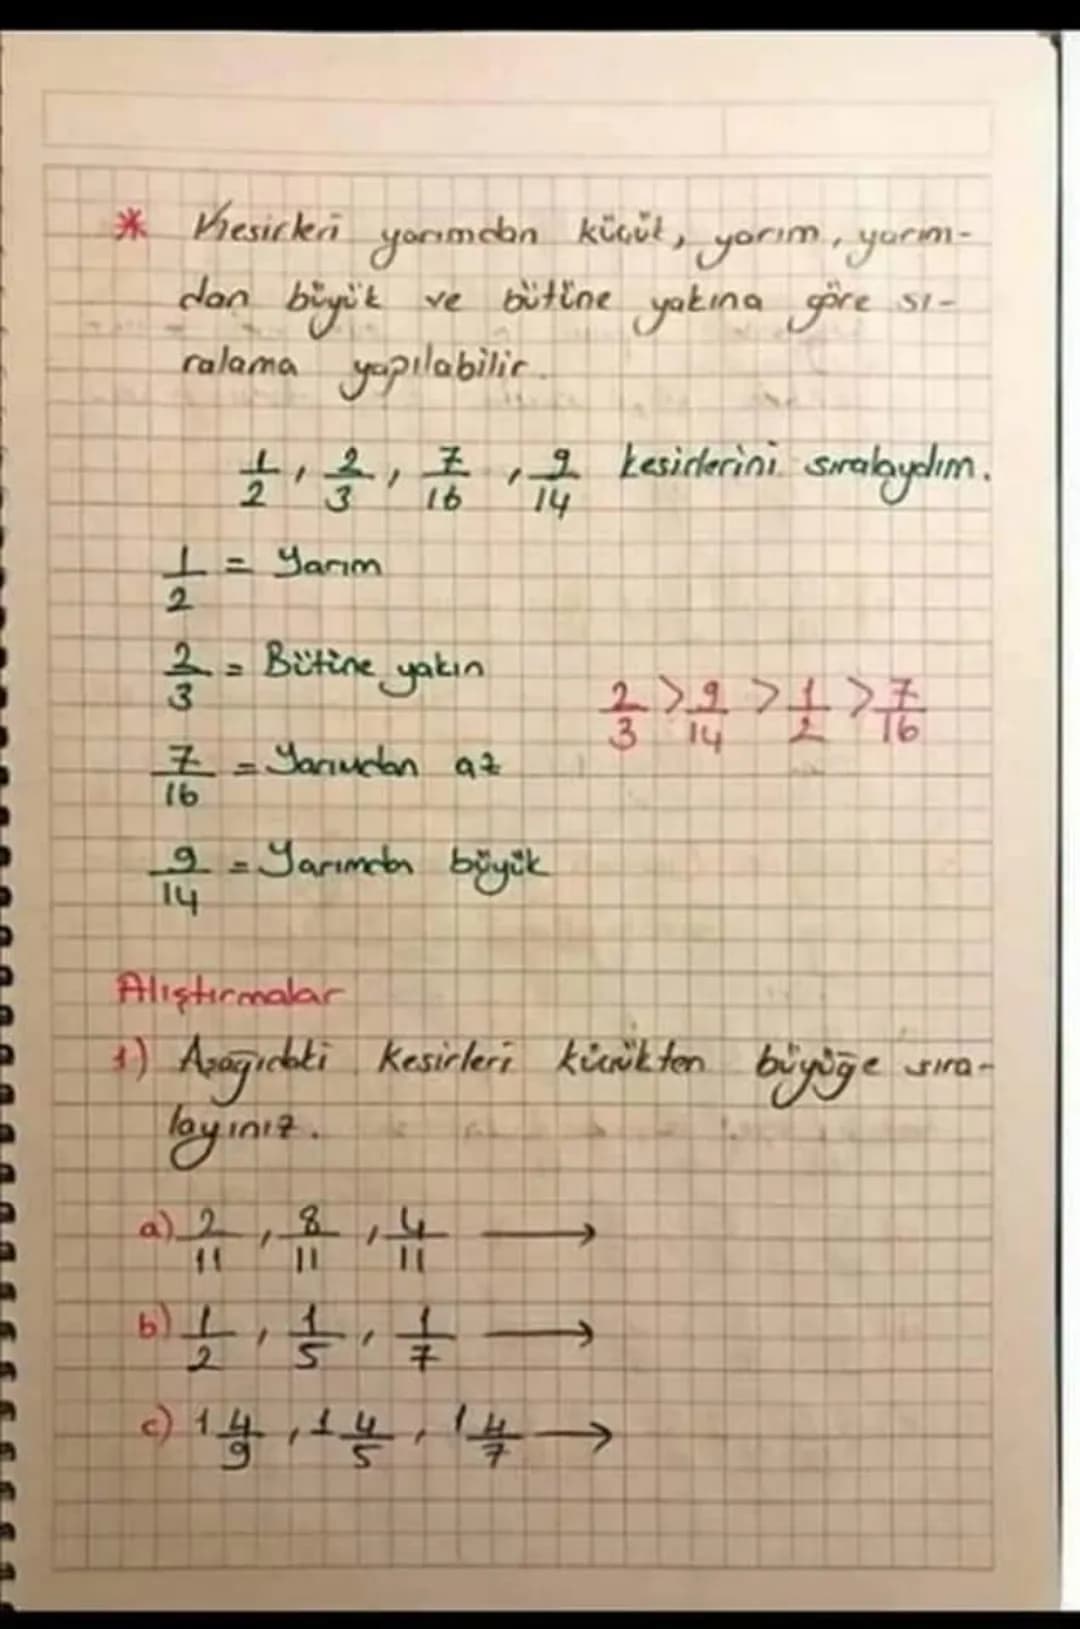 * Kesirleri yarımdan küçük, yarım, yarım-
dan büyük ve bütüne yakına göre sı-
ralama yapılabilir.
1/2, 2/3, 7/16, 9/14 kesirlerini sıralaydım.
1/2 = Yarım
2/3 = Bütüne yakın
2/3 > 9/14 > 1/2 > 7/16
7/16 = Yarımdan az
9/14 = Yarımdan büyük
Alıştırmalar
1) Aşağıdaki kesirleri küçükten büyüğe sıra-
layınız.
a) 2/11, 8/11, 4/11 →
b) 1/2, 1/5, 1/7 →
c) 1 4/9, 1 4/5, 1 4/7 →